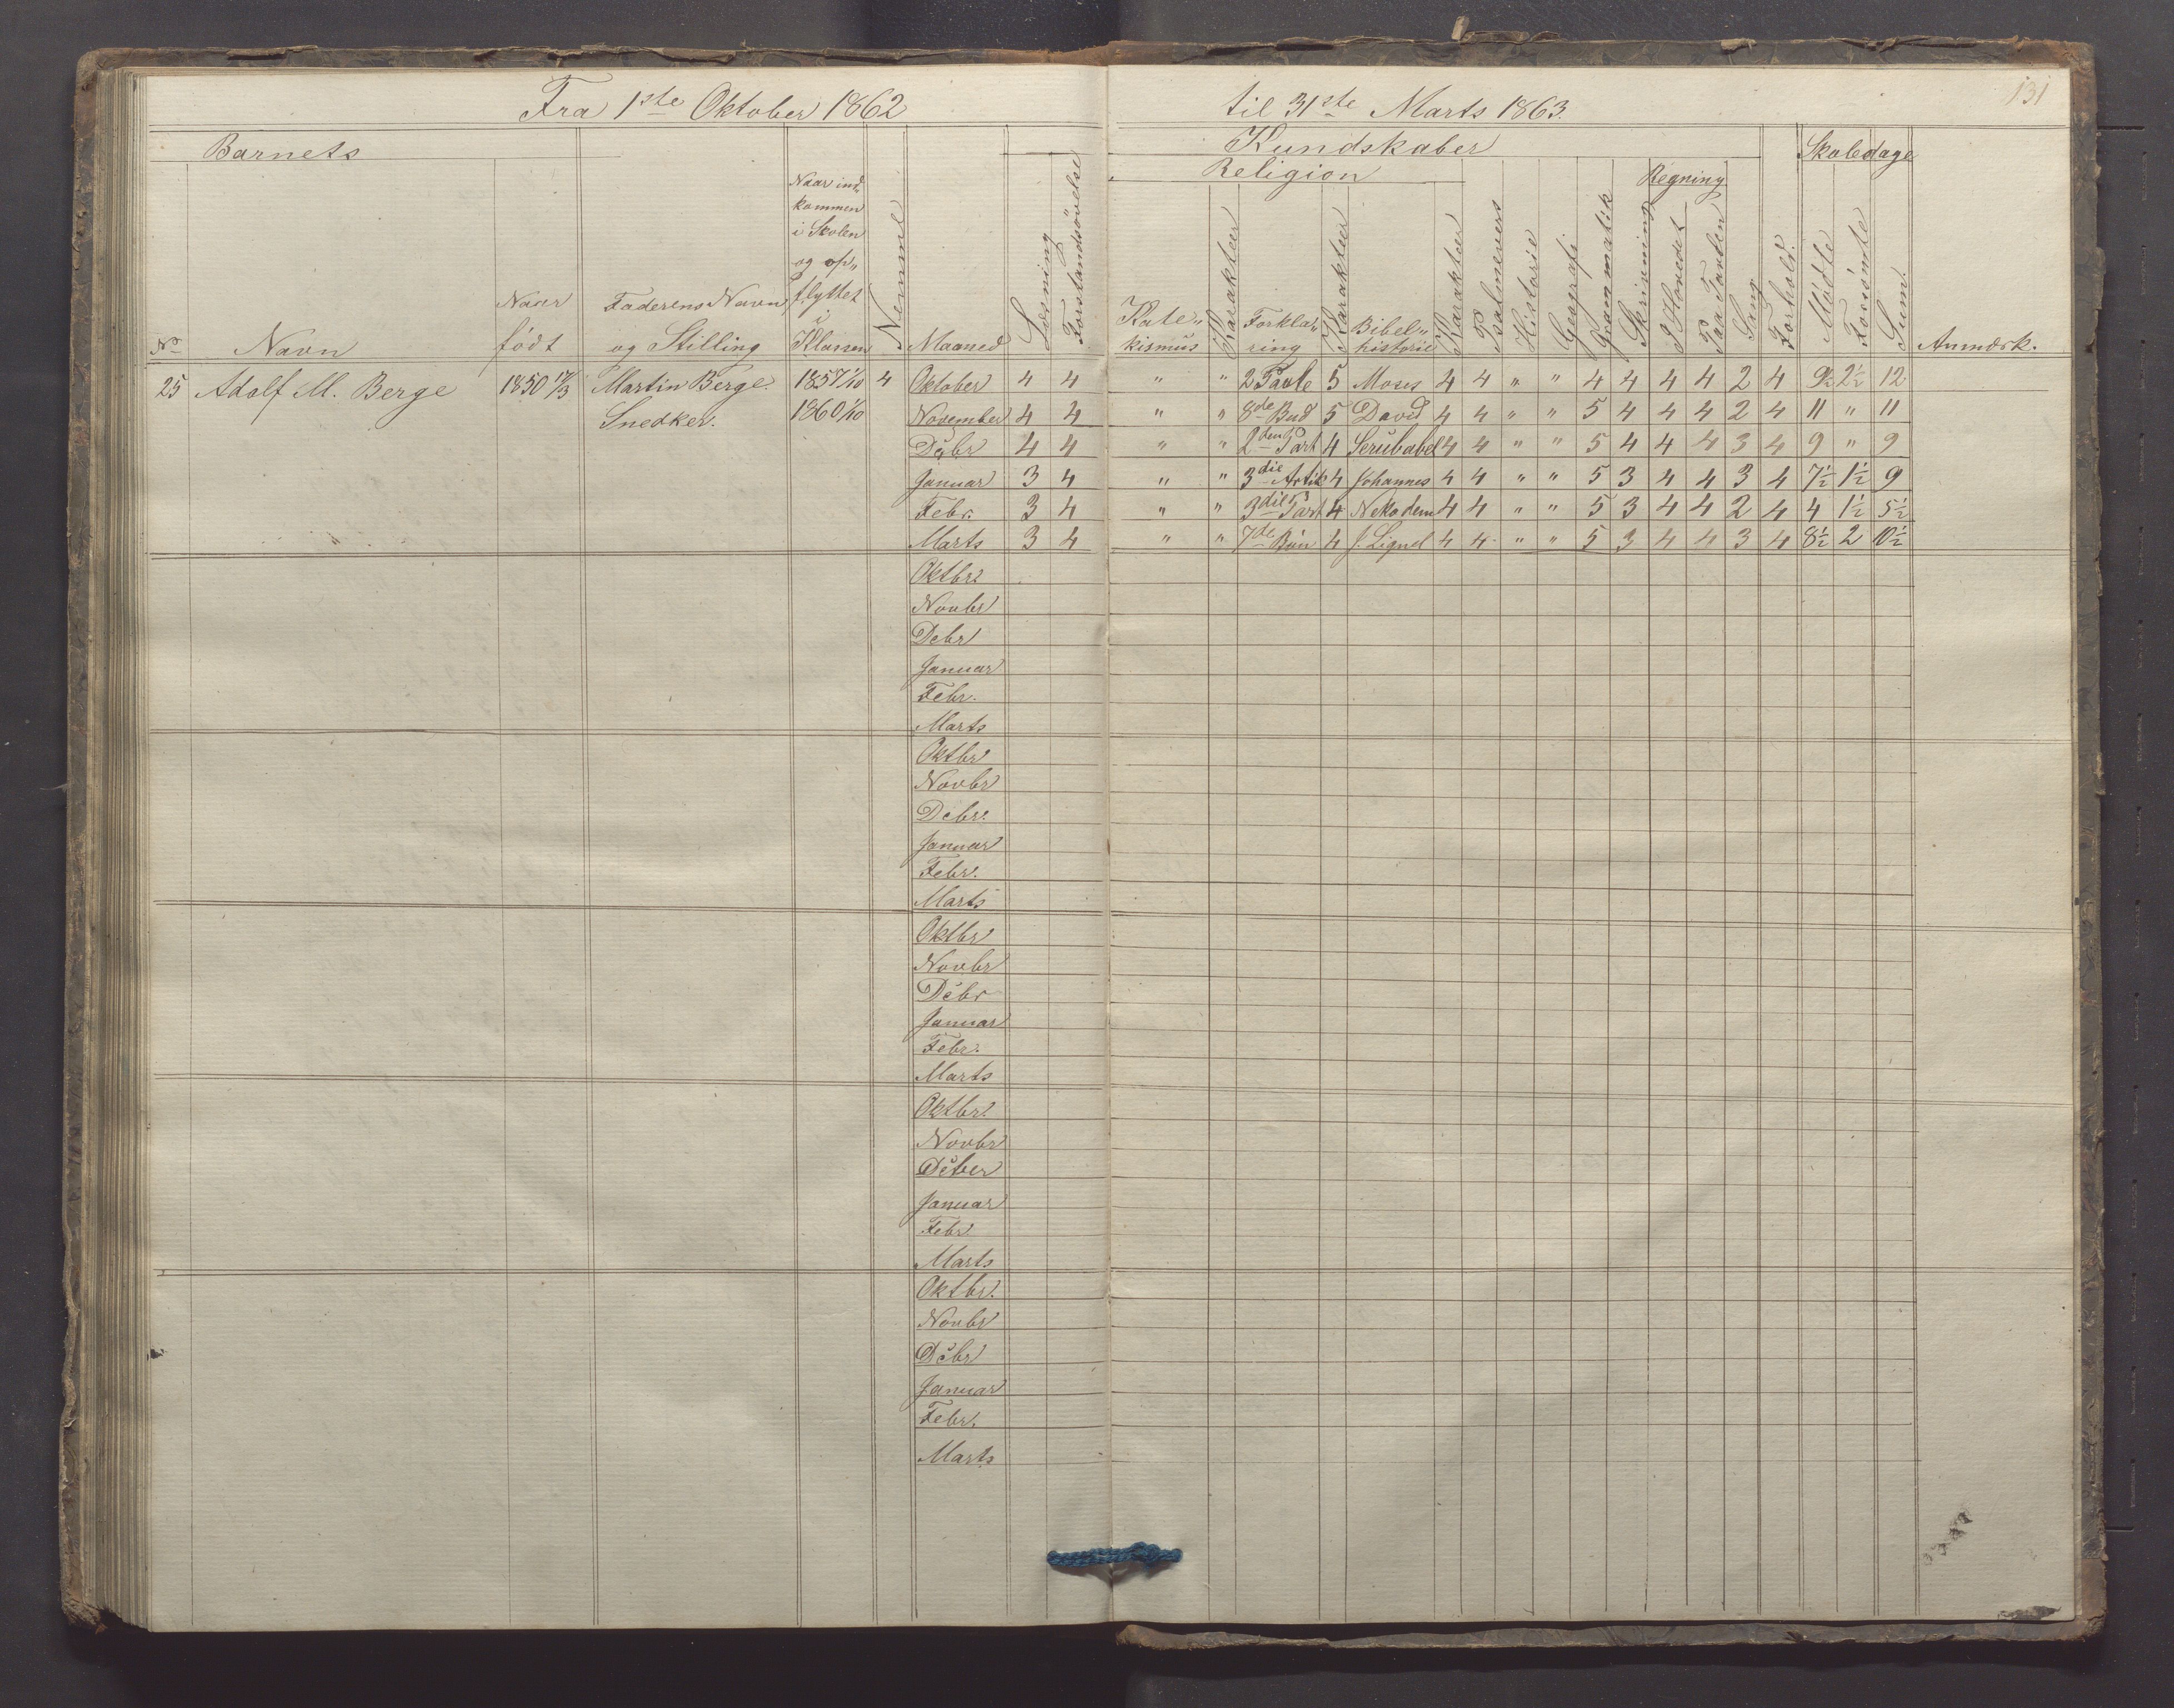 131
Fra 1ste Oktober 1862 til 31ste Marts 1863.
Barnets Kundskaber Skoledage
Religion Regning
No Navn Naar født Faderens Navn og Stilling Naar ind„ kommen i Skolen og op„ flyttet i Klassen Nemme Maaned Læsning Forstandsøvelse Kate„ kismus Karakter Forkla„ ring Karakter Bibel„ historie Karakter Psalmevers Historie Geografi Grammatik Skrivning I Hovedet Paa Tavlen Sang Forhold. Mødte Forsømte Sum. Anmærk.
25 Adolf M. Berge 1850 17/3 Martin Berge 1857 1/10 4 Oktober 4 4 „ „ 2 Tavle 5 Moses 4 4 „ „ 4 4 4 4 2 4 9½ 2½ 12
Snedker. 1860 1/10 November 4 4 „ „ 8de Bud 5 David 4 4 „ „ 5 4 4 4 2 4 11 „ 11
Debr 4 4 „ „ 2den Part 4 Serubabel 4 4 „ „ 5 4 4 4 3 4 9 „ 9
Januar 3 4 „ „ 3die Artik 4 Johannes 4 4 „ „ 5 3 4 4 3 4 7½ 1½ 9
Febr. 3 4 „ „ 3die Part 4 Nekodem 4 4 „ „ 5 3 4 4 2 4 4 1½ 5½
Marts 3 4 „ „ 7de Bøn 4 J. Lignel 4 4 „ „ 5 3 4 4 3 4 8½ 2 10½
Oktbr.
Novbr
Debr
Januar
Febr.
Marts
Oktbr
Novbr
Debr.
Januar
Febr.
Marts
Oktbr
Novbr
Debr
Januar
Febr.
Marts
Oktbr.
Novbr
Deber
Januar
Febr
Marts
Oktbr.
Novbr
Debr
Januar
Febr.
Marts